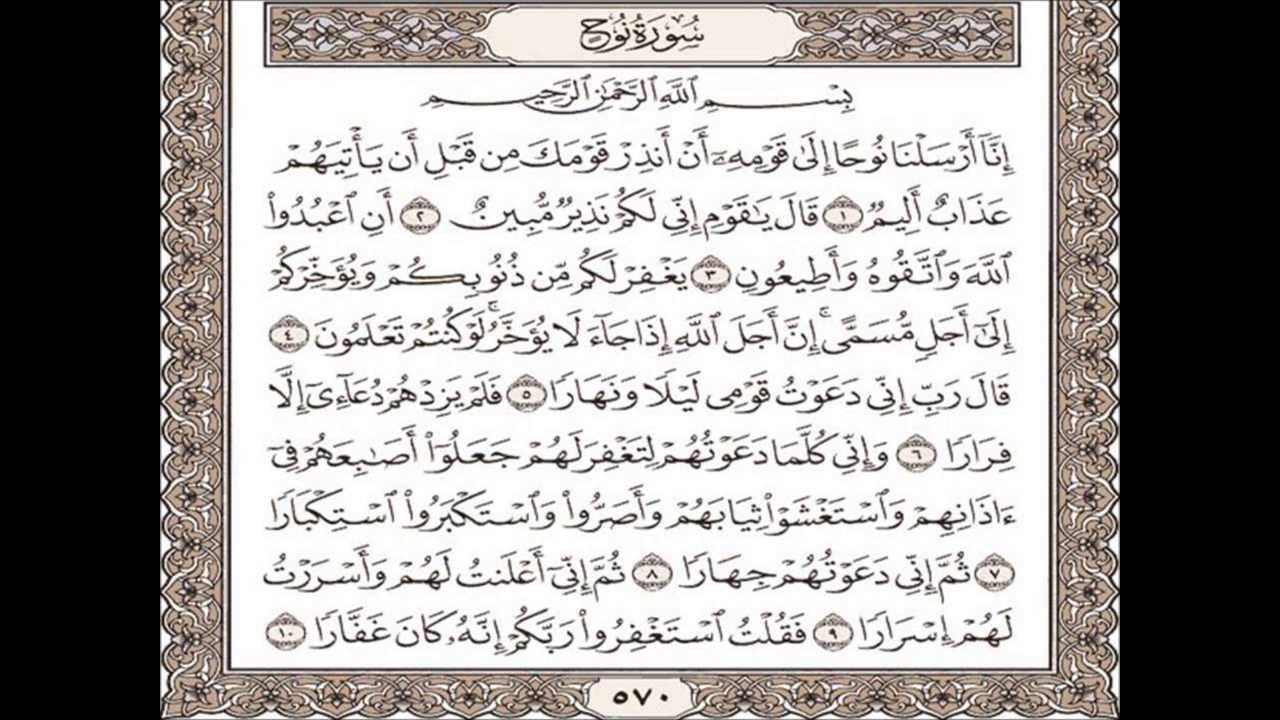 سُورَةُ نُوحٍ
بِسْمِ ٱللَّهِ ٱلرَّحْمَٰنِ ٱلرَّحِيمِ
إِنَّآ أَرْسَلْنَا نُوحًا إِلَىٰ قَوْمِهِۦٓ أَنْ أَنذِرْ قَوْمَكَ مِن قَبْلِ أَن يَأْتِيَهُمْ
عَذَابٌ أَلِيمٌ ١ قَالَ يَٰقَوْمِ إِنِّى لَكُمْ نَذِيرٌ مُّبِينٌ ٢ أَنِ ٱعْبُدُوا۟
ٱللَّهَ وَٱتَّقُوهُ وَأَطِيعُونِ ٣ يَغْفِرْ لَكُم مِّن ذُنُوبِكُمْ وَيُؤَخِّرْكُمْ
إِلَىٰٓ أَجَلٍ مُّسَمًّى ۚ إِنَّ أَجَلَ ٱللَّهِ إِذَا جَآءَ لَا يُؤَخَّرُ ۖ لَوْ كُنتُمْ تَعْلَمُونَ ٤
قَالَ رَبِّ إِنِّى دَعَوْتُ قَوْمِى لَيْلًا وَنَهَارًا ٥ فَلَمْ يَزِدْهُمْ دُعَآءِىٓ إِلَّا
فِرَارًا ٦ وَإِنِّى كُلَّمَا دَعَوْتُهُمْ لِتَغْفِرَ لَهُمْ جَعَلُوٓا۟ أَصَٰبِعَهُمْ فِىٓ
ءَاذَانِهِمْ وَٱسْتَغْشَوْا۟ ثِيَابَهُمْ وَأَصَرُّوا۟ وَٱسْتَكْبَرُوا۟ ٱسْتِكْبَارًا
٧ ثُمَّ إِنِّى دَعَوْتُهُمْ جِهَارًا ٨ ثُمَّ إِنِّىٓ أَعْلَنتُ لَهُمْ وَأَسْرَرْتُ
لَهُمْ إِسْرَارًا ٩ فَقُلْتُ ٱسْتَغْفِرُوا۟ رَبَّكُمْ إِنَّهُۥ كَانَ غَفَّارًا ١٠
٥٧٠